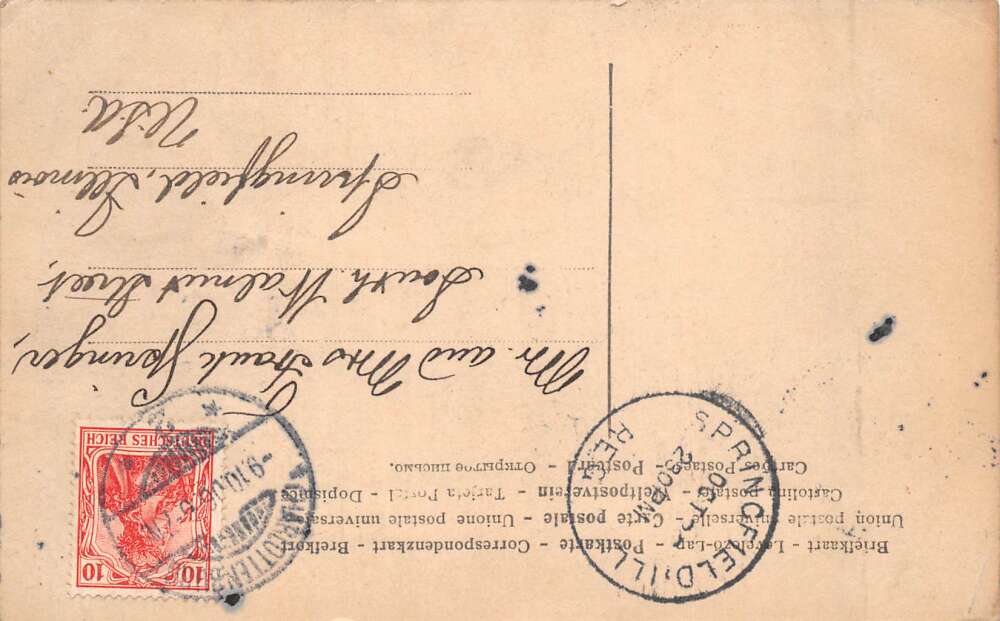 Briefkaart - Levelező-Lap - Postkarte - Correspondenzkart - Brefkort
Union postale universelle - Carte postale - Unione postale universale
Cartolina postale - Weltpostverein - Tarjeta Postal - Dopisnice
Cartões Postaes - Postcard - Открытое письмо.
10 10
DEUTSCHES REICH
SPRINGFIELD, ILL.
OCT
230PM
REC'D
Mr. and Mrs Frank Springer,
South. Walnut Street,
Springfield, Illinois
U.S.a.